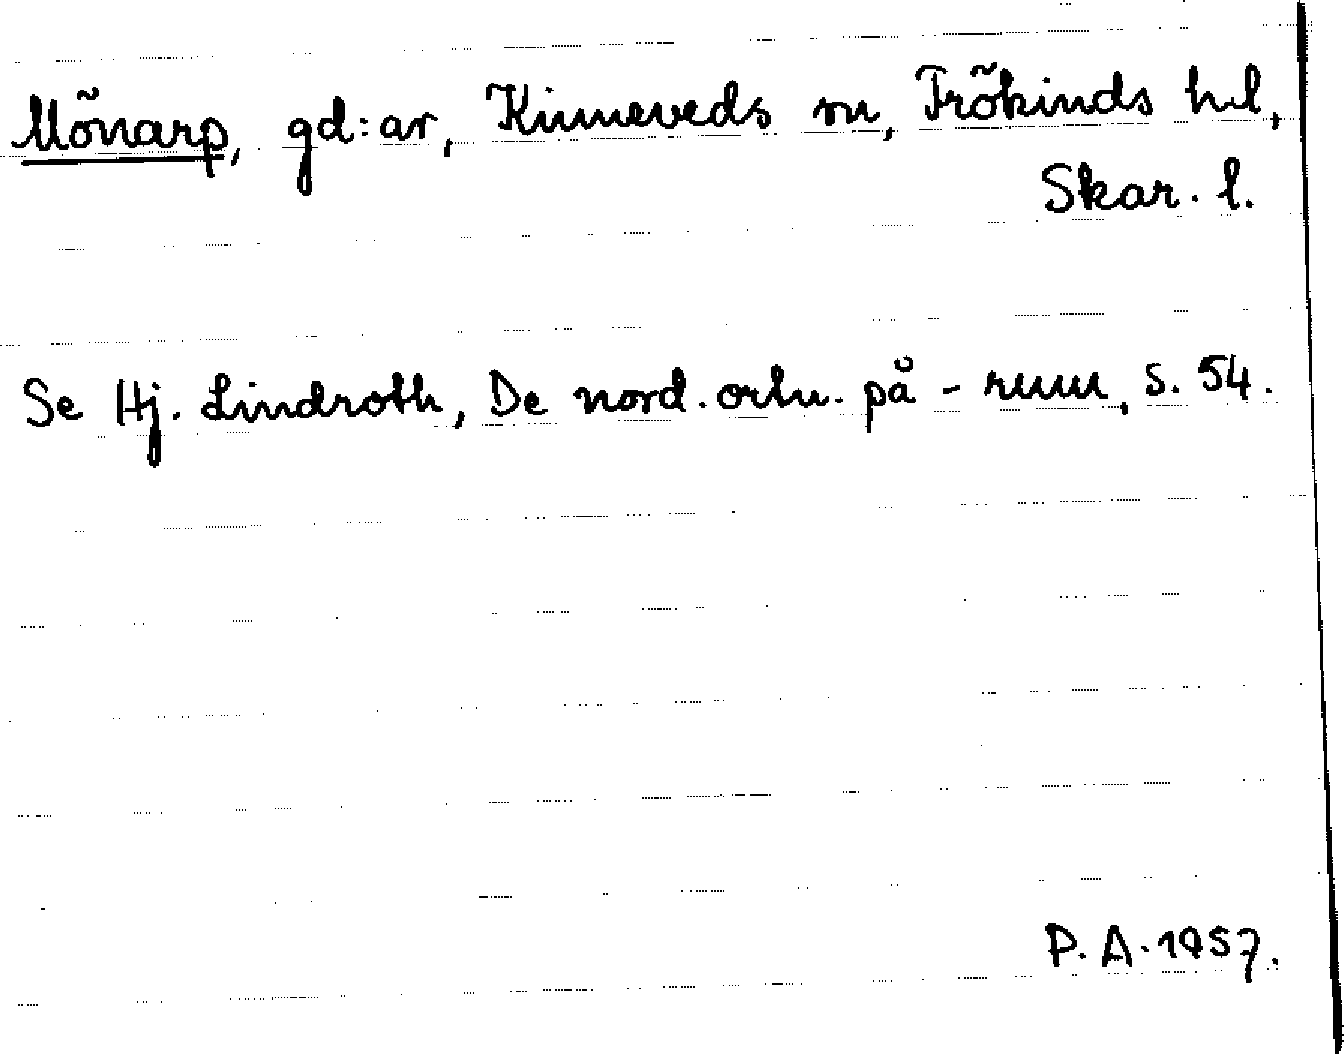 Mönarp, gd:ar, Kinneveds sn, Frökinds hd,
Skar. l.
Se Hj. Lindroth, De nord. ortn. på - rum, s. 54.
P. A. 1957.